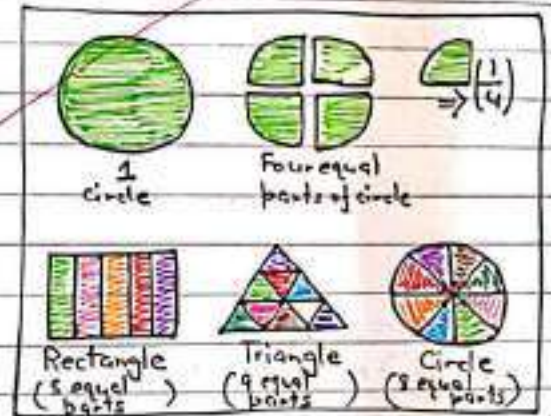 1
circle
Four equal
parts of circle
=> (1/4)
Rectangle
(5 equal
parts)
Triangle
(9 equal
parts)
Circle
(8 equal
parts)